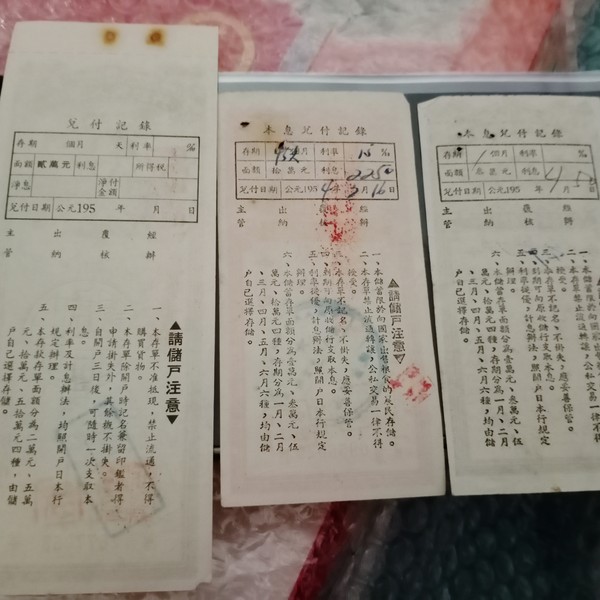 兌付記錄
存期 個月 天 利率 ‰
面額 貳萬元 利息 所得稅
淨息 淨付金額
兌付日期 公元195 年 月 日
主管 出納 覆核 經辦
▲請儲戶注意▼
一、本存單不准抵現，禁止流通，不得
購買貨物。
二、本存單除開戶時記名兼留印鑑者得
申請掛失外，其餘概不掛失。
三、自開戶三日後，可隨時一次支取本
息。
四、利率及計息辦法，均照開戶日本行
規定辦理。
五、本存款存單面額分為二萬元、五萬
元、拾萬元、五十萬元四種，由儲
戶自己選擇存儲。
本息兌付記錄
存期 月 利率 15 ‰
面額 拾萬元 利息 2250
兌付日期 公元195 4 年 月 16 日
主管 出納 覆核 經辦
▲請儲戶注意▼
一、本儲蓄限於向國家出售糧食的農民存儲。
二、本存單禁止流通轉讓，公私交易一律不得
接受。
三、本存單不記名、不掛失，應妥善保管。
四、到期可向原收儲行支取本息。
五、利率從優，計息辦法，照開戶日本行規定
辦理。
六、本儲蓄存單面額分為壹萬元、叁萬元、伍
萬元、拾萬元四種，存期分為一月、二月
、三月、四月、五月、六月六種，均由儲
戶自己選擇存儲。
本息兌付記錄
存期 1 個月 利率 ‰
面額 叁萬元 利息
兌付日期 公元195 4 年 月 日
主管 出納 覆核 經辦
一、本儲蓄
二、本存單禁止流通轉讓，公私交易一律不得
接受。
三、本存單不記名、不掛失，應妥善保管。
四、到期可向原收儲行支取本息。
五、利率從優，計息辦法，照開戶日本行規定
辦理。
六、本儲蓄存單面額分為壹萬元、叁萬元、伍
萬元、拾萬元四種，存期分為一月、二月
、三月、四月、五月、六月六種，均由儲
戶自己選擇存儲。